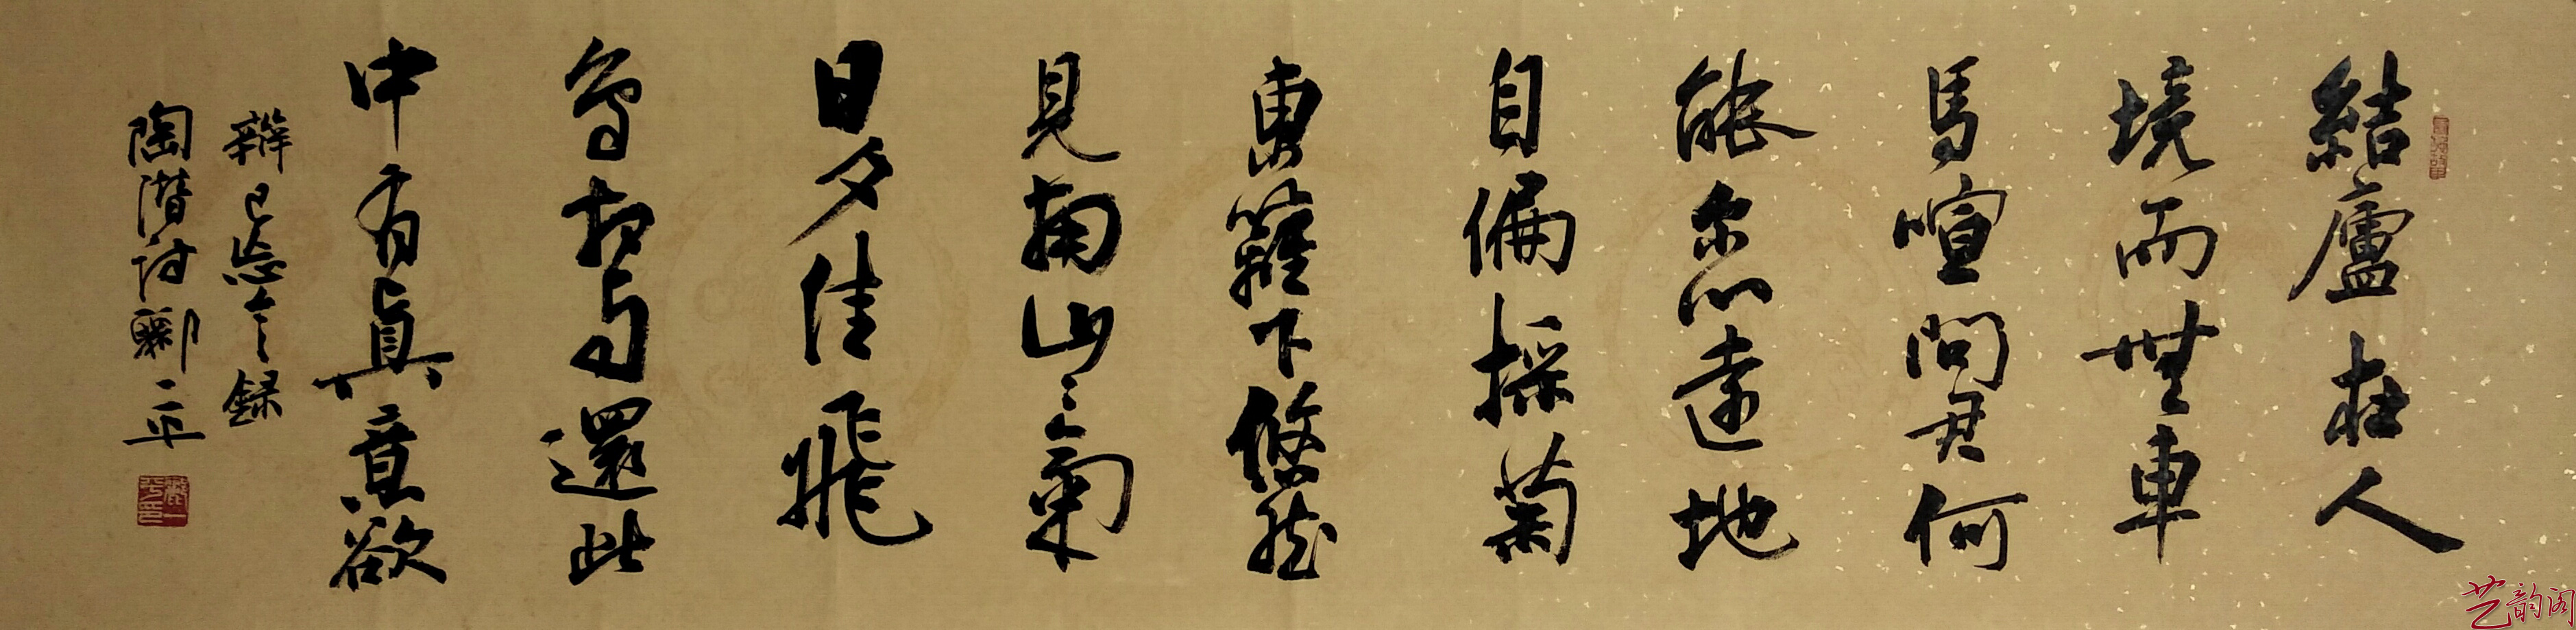 結廬在人
境而無車
馬喧問君何
能尔心遠地
自偏採菊
東籬下悠然
見南山〻氣
日夕佳飛
鳥相与還此
中有眞意欲
辨已忘言録
陶潜詩一平
艺韵阁